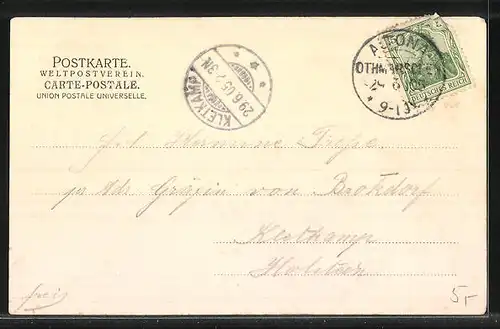 POSTKARTE.
WELTPOSTVEREIN.
CARTE-POSTALE.
UNION POSTALE UNIVERSELLE.
KLETKAMP
29.6.05.2-3N
ALTONA
OTHMARSCHEN
9-10V
DEUTSCHES REICH
Frl. Hermine
pr Adr Gräfin von Brokdorf
Kletkamp
Holstein
frei
5,-